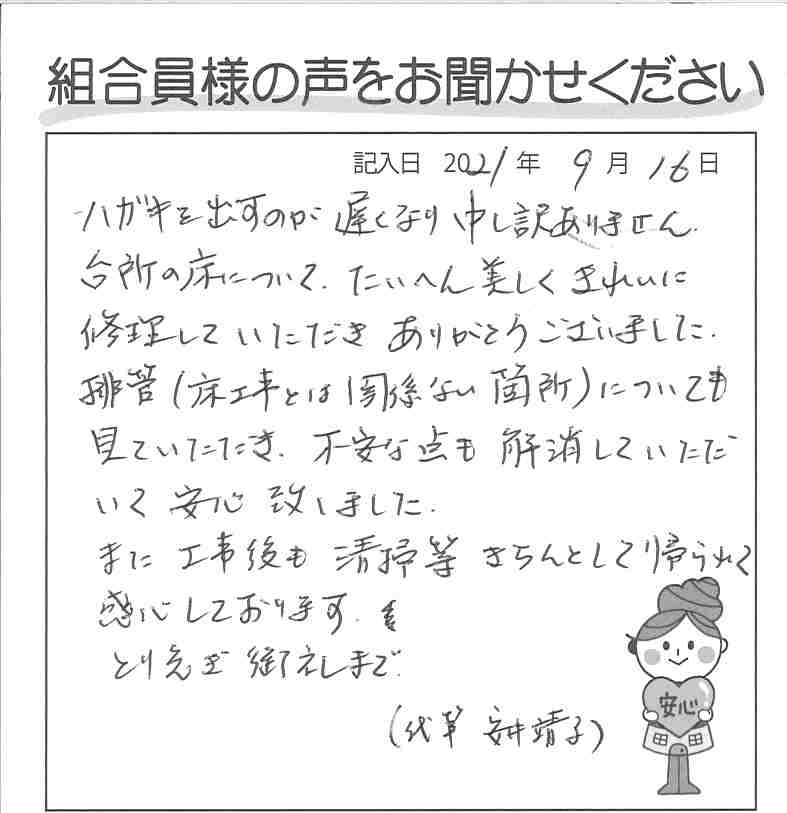 組合員様の声をお聞かせください
記入日 2021年 9月 16日
ハガキを出すのが 遅くなり 申し訳ありません.
台所の床について. たいへん 美しく きれいに
修理して いただき ありがとうございました.
排管(床工事とは 関係ない 箇所)についても
見ていただき. 不安な点も 解消していただ
いて 安心 致しました.
また 工事後も 清掃等 きちんとして帰られて
感心しております.
とり急ぎ 御礼まで.
(代筆 安井靖子)
安心